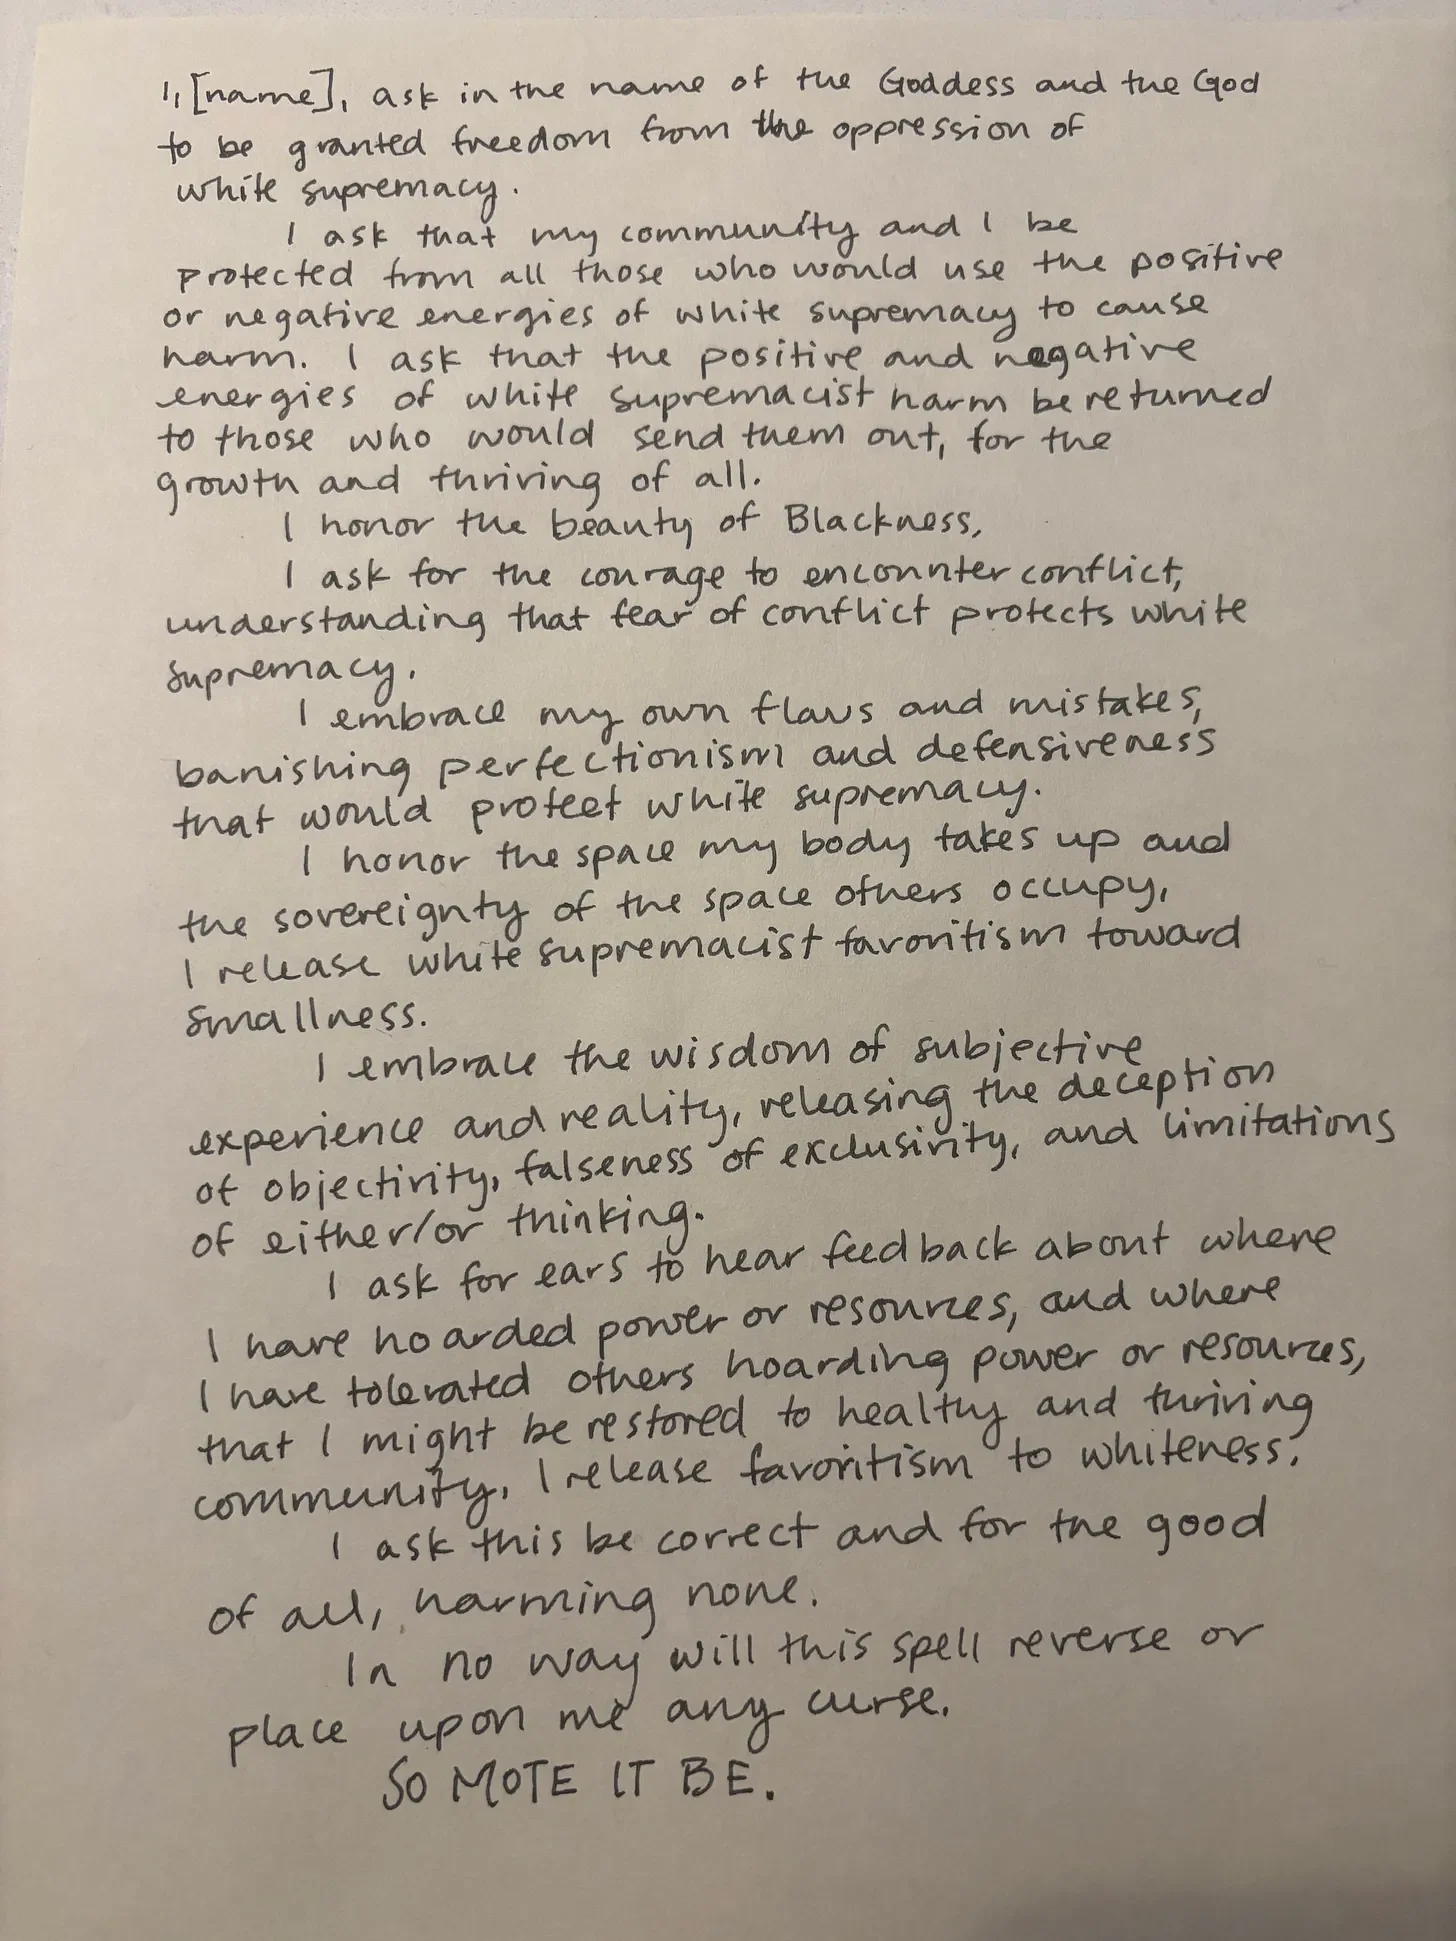 I, [name], ask in the name of the Goddess and the God
to be granted freedom from the oppression of
white supremacy.
I ask that my community and I be
protected from all those who would use the positive
or negative energies of white supremacy to cause
harm. I ask that the positive and negative
energies of white supremacist harm be returned
to those who would send them out, for the
growth and thriving of all.
I honor the beauty of Blackness,
I ask for the courage to encounter conflict,
understanding that fear of conflict protects white
supremacy.
I embrace my own flaws and mistakes,
banishing perfectionism and defensiveness
that would protect white supremacy.
I honor the space my body takes up and
the sovereignty of the space others occupy,
I release white supremacist favoritism toward
smallness.
I embrace the wisdom of subjective
experience and reality, releasing the deception
of objectivity, falseness of exclusivity, and limitations
of either/or thinking.
I ask for ears to hear feedback about where
I have hoarded power or resources, and where
I have tolerated others hoarding power or resources,
that I might be restored to healthy and thriving
community, I release favoritism to whiteness.
I ask this be correct and for the good
of all, harming none.
In no way will this spell reverse or
place upon me any curse.
SO MOTE IT BE.